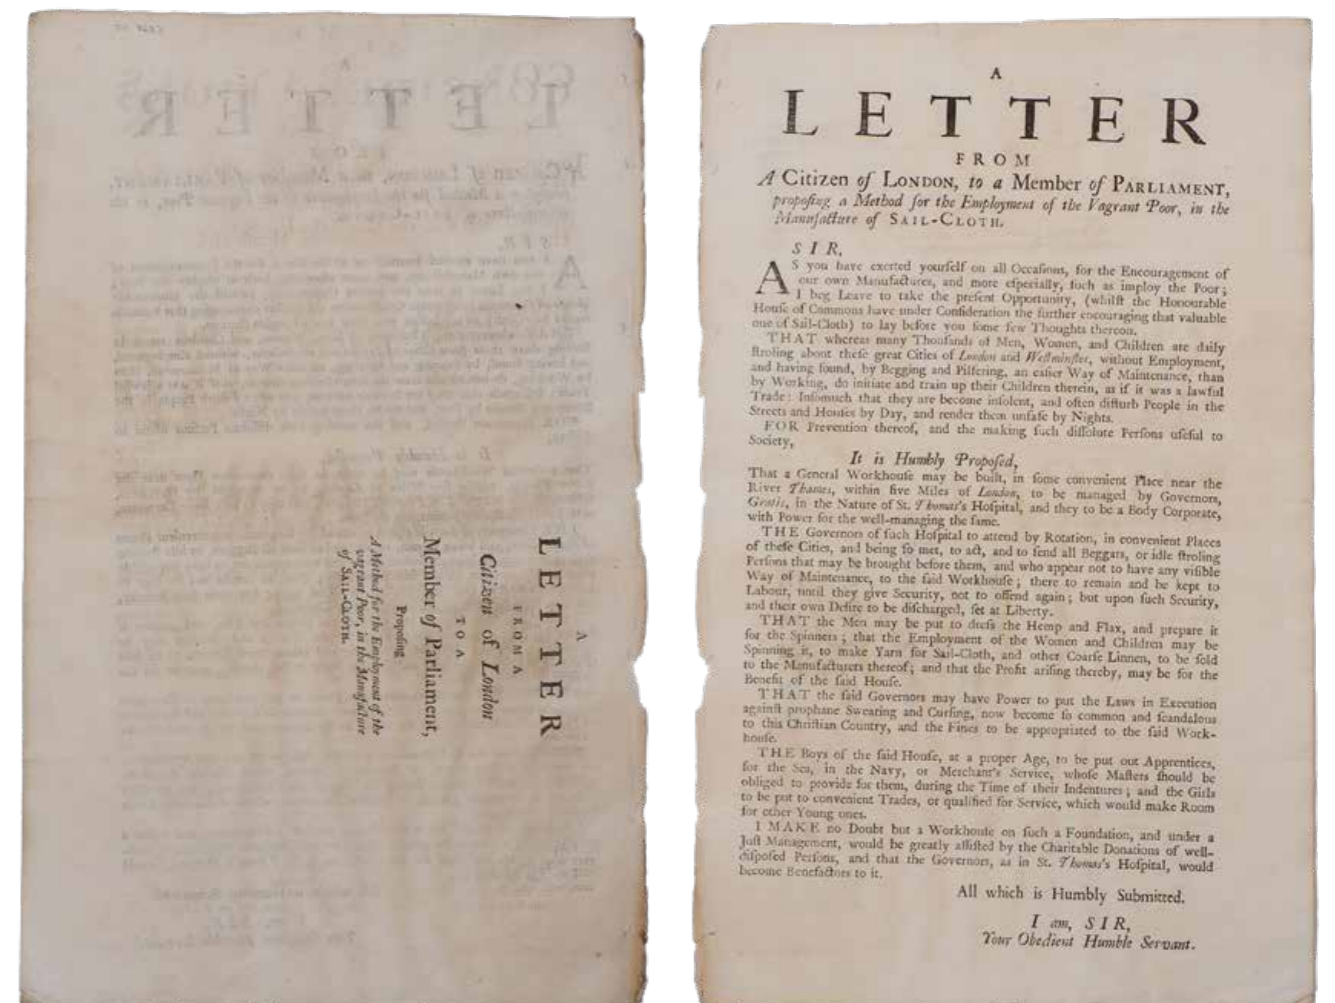 A
LETTER
FROM A
Citizen of London
TO A
Member of Parliament,
Propoſing
A Method for the Employment of the
vagrant Poor, in the Manufacture
of SAIL-CLOTH.
A
LETTER
FROM
A Citizen of LONDON, to a Member of PARLIAMENT,
propoſing a Method for the Employment of the Vagrant Poor, in the
Manufacture of SAIL-CLOTH.
SIR,
AS you have exerted yourſelf on all Occaſions, for the Encouragement of
our own Manufactures, and more eſpecially, ſuch as imploy the Poor;
I beg Leave to take the preſent Opportunity, (whilſt the Honourable
Houſe of Commons have under Conſideration the further encouraging that valuable
one of Sail-Cloth) to lay before you ſome few Thoughts thereon.
THAT whereas many Thouſands of Men, Women, and Children are daily
ſtroling about theſe great Cities of London and Weſtminſter, without Employment,
and having found, by Begging and Pilfering, an eaſier Way of Maintenance, than
by Working, do initiate and train up their Children therein, as if it was a lawful
Trade: Inſomuch that they are become inſolent, and often diſturb People in the
Streets and Houſes by Day, and render them unſafe by Nights.
FOR Prevention thereof, and the making ſuch diſſolute Perſons uſeful to
Society,
It is Humbly Propoſed,
That a General Workhouſe may be built, in ſome convenient Place near the
River Thames, within five Miles of London, to be managed by Governors,
Gratis, in the Nature of St. Thomas's Hoſpital, and they to be a Body Corporate,
with Power for the well-managing the ſame.
THE Governors of ſuch Hoſpital to attend by Rotation, in convenient Places
of theſe Cities, and being ſo met, to act, and to ſend all Beggars, or idle ſtroling
Perſons that may be brought before them, and who appear not to have any viſible
Way of Maintenance, to the ſaid Workhouſe; there to remain and be kept to
Labour, until they give Security, not to offend again; but upon ſuch Security,
and their own Deſire to be diſcharged, ſet at Liberty.
THAT the Men may be put to dreſs the Hemp and Flax, and prepare it
for the Spinners; that the Employment of the Women and Children may be
Spinning it, to make Yarn for Sail-Cloth, and other Coarſe Linnen, to be ſold
to the Manufacturers thereof; and that the Profit ariſing thereby, may be for the
Benefit of the ſaid Houſe.
THAT the ſaid Governors may have Power to put the Laws in Execution
againſt prophane Swearing and Curſing, now become ſo common and ſcandalous
to this Chriſtian Country, and the Fines to be appropriated to the ſaid Work-
houſe.
THE Boys of the ſaid Houſe, at a proper Age, to be put out Apprentices,
for the Sea, in the Navy, or Merchant's Service, whoſe Maſters ſhould be
obliged to provide for them, during the Time of their Indentures; and the Girls
to be put to convenient Trades, or qualified for Service, which would make Room
for other Young ones.
I MAKE no Doubt but a Workhouſe on ſuch a Foundation, and under a
Juſt Management, would be greatly aſſiſted by the Charitable Donations of well-
diſpoſed Perſons, and that the Governors, as in St. Thomas's Hoſpital, would
become Benefactors to it.
All which is Humbly Submitted.
I am, SIR,
Your Obedient Humble Servant.